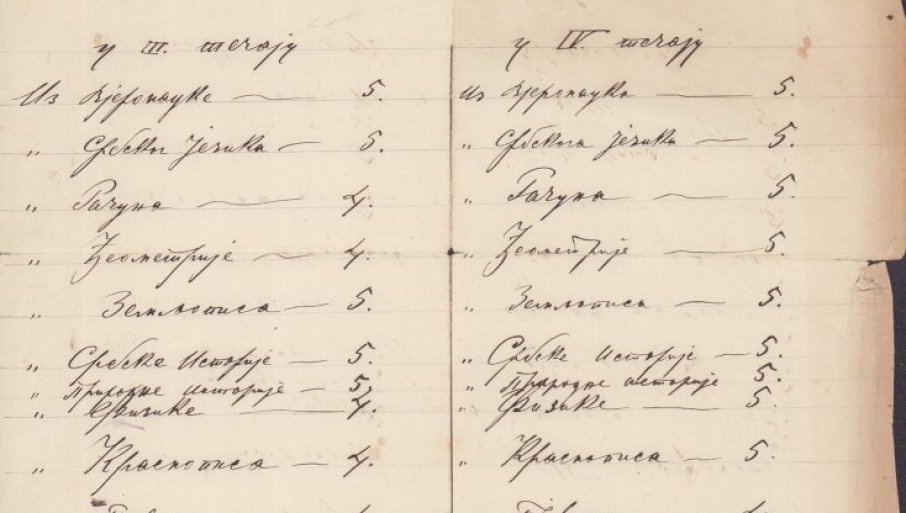 у III. течају
Из Вјеронауке — 5.
„ Србског Језика — 5.
„ Рачуна — 4.
„ Ђеометрије — 4.
„ Землъописа — 5.
„ Србске Историје — 5.
„ Природне историје — 5.
„ Физике — 4.
„ Краснописа — 4.
у IV. течају
Из Вјеронаука — 5.
„ Србскога језика — 5.
„ Рачуна — 5.
„ Ђеометрије — 5.
„ Земљописа — 5.
„ Србске историје — 5.
„ Природне историје 5.
„ Физике — 5.
„ Краснописа — 5.